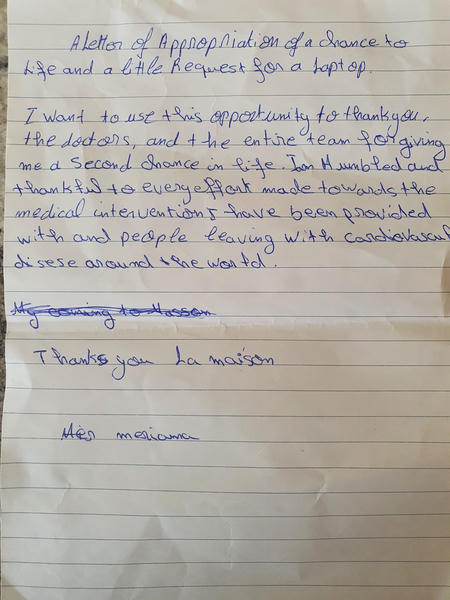 A Letter of Appropriation of a chance to
Life and a little Request for a Laptop.
I want to use this opportunity to thank you,
the doctors, and the entire team for giving
me a Second chance in life. Iam Humbled and
thankful to every effort made towards the
medical intervention I have been provided
with and people leaving with cardiovascul
disese around the world.
My coming to
Thanks you La maison
meriama